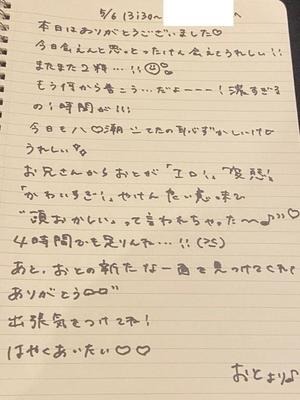 5/6 13:30〜 へ
本日はありがとうございました♡
今日会えんと思っとったけん会えてうれしい!!
またまた2科…!!
もう何から書こう…だよーーー!濃すぎる
の!時間が!!!
今日も八♡潮 してたの恥ずかしいけど
うれしい
お兄さんからおとが「エロ!」"変態"
「かわいすぎ!」やけん たい 意味で
"頭おかしい"って言われちゃった〜♪♡
4時間でも足りんわ…!!
あと、おとの新たな一面を見つけてくれて
ありがとう
出張気をつけてね!
はやくあいたい♡♡
おとより♪